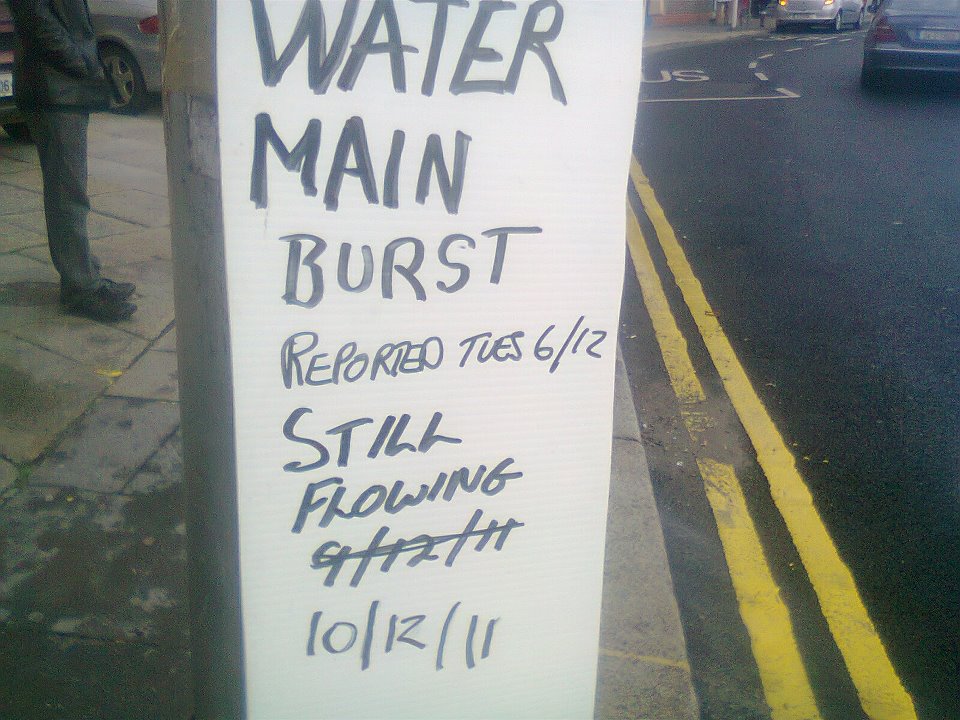 WATER
MAIN
BURST
REPORTED TUES 6/12
STILL
FLOWING
9/12/11
10/12/11
US